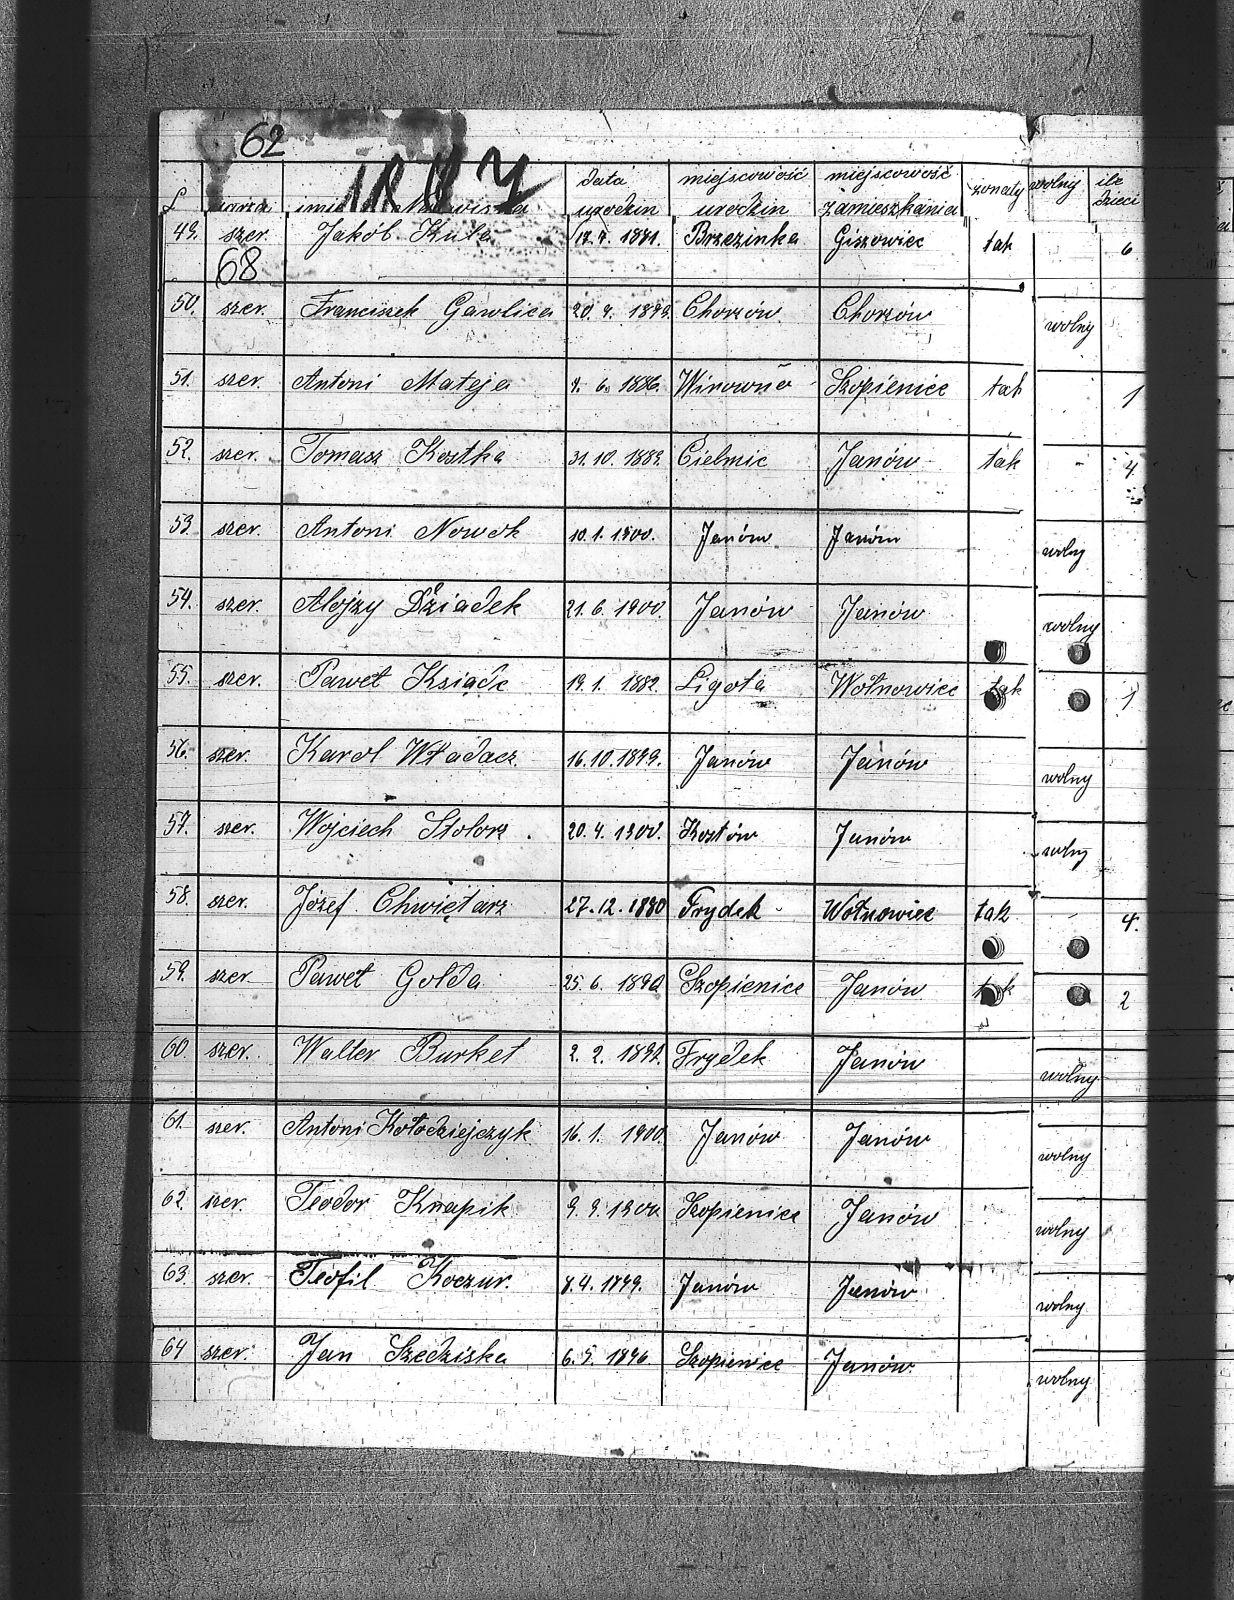 62
1887
data miejscowość miejscowość żonaty wolny ile
urodzin urodzin zamieszkania dzieci
49. szer. Jakób Kula 1881. Brzezinka Giszowiec tak 6
68
50. szer. Franciszek Gawlica 20. 4. 1899. Chorzów Chorzów wolny
51. szer. Antoni Mateja 6. 1886. Szopienice tak 1
52. szer. Tomasz Kostka 31. 10. 1889. Cielmic Janów tak - 4
53. szer. Antoni Nowok 10. 1. 1900. Janów Janów wolny
54. szer. Alojzy Dziadek 21. 6. 1900. Janów Janów wolny
55. szer. Paweł Ksiądz 19. 1. 1882. Ligota Wełnowiec tak 1
56. szer. Karol Władacz 16. 10. 1899. Janów Janów wolny
57. szer. Wojciech Stolorz 20. 4. 1900. Kostów Janów wolny
58. szer. Józef Chwiętarz 27. 12. Frydek Wełnowiec tak - 4.
59. szer. Paweł Golda 25. 6. 1890 Szopienice Janów tak 2
60. szer. Walter Burket 2. 2. Frydek Janów wolny
61. szer. Antoni Kołodziejczyk 16. 1. 1900. Janów Janów wolny
62. szer. Teodor Knapik 9. 9. 1900 Szopienice Janów wolny
63. szer. Teofil Koczur. 4. 1899. Janów Janów wolny
64 szer. Jan Szedziska 6. 5. 1896 Szopienice Janów wolny